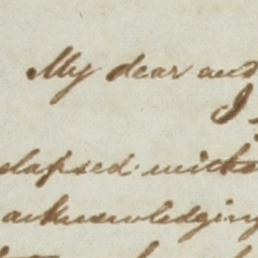 My dear and
I
elapsed witho
acknowledging